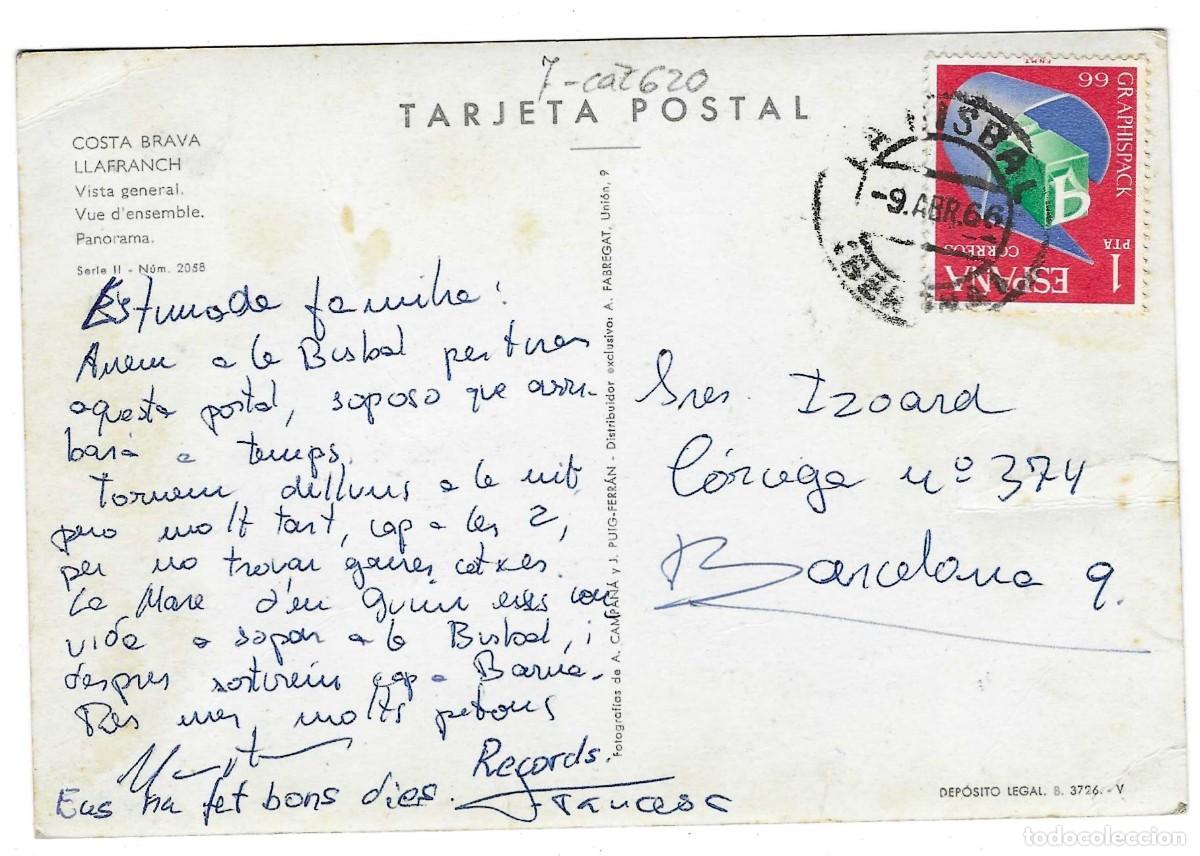 7-cat620
TARJETA POSTAL
COSTA BRAVA
LLAFRANCH
Vista general.
Vue d'ensemble.
Panorama.
Serie II - Núm. 2058
Estimada familia:
Anem a la Bisbal per tirar
aquesta postal, suposo que arri-
barà a temps.
Tornem dilluns a la nit
pero molt tart, cap a les 2,
per no trovar gaires cotxes.
La Mare d'en Quim ens con
vida a sopar a la Bisbal, i
despres sortirem cap a Barna.
Res mes, molts petons
Records.
Ens ha fet bons dies. Francesc
Fotografías de A. CAMPAÑÁ y J. PUIG-FERRÁN - Distribuidor exclusivo: A. FABREGAT, Unión, 9
F.N.M.T.
GRAPHISPACK
66
B
1
PTA
ESPAÑA
CORREOS
LA BISBAL
-9.ABR.66
Sres. Izoard
Córcega nº 374
Barcelona 9.
DEPÓSITO LEGAL. B. 3726.-V
todocoleccion